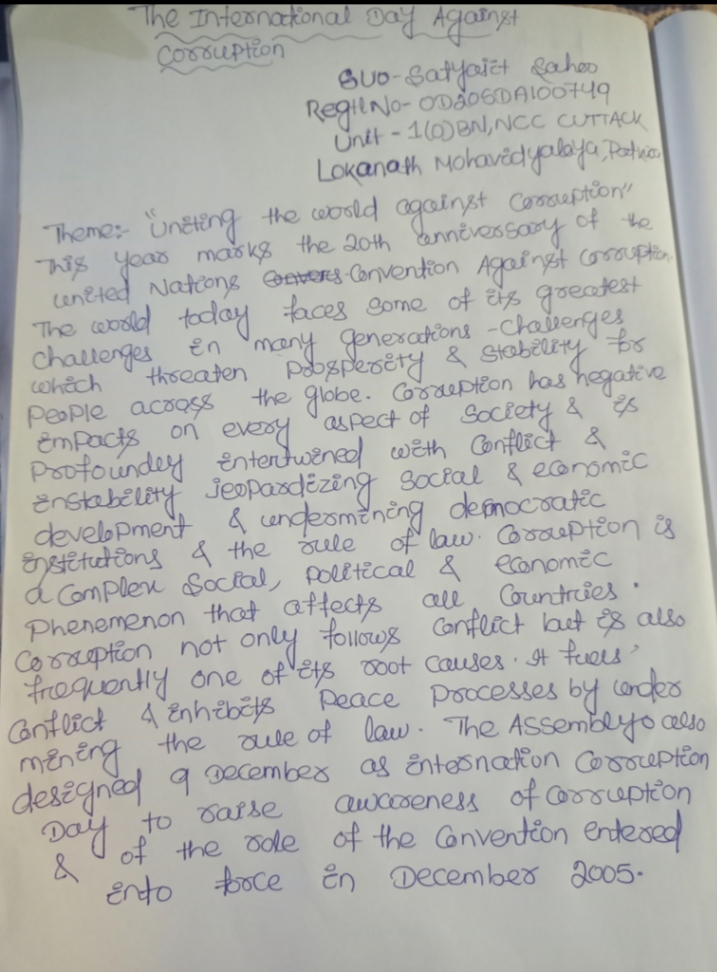 The International Day Against
Corruption
SUO-Satyajit Sahoo
Regtl No- OD20SDA100749
Unit - 1(O)BN, NCC CUTTACK
Lokanath Mohavidyalaya,
Theme:- "Uniting the world against Corruption"
This year marks the 20th anniversary of the
united Nations Convention Against corruption.
The world today faces some of its greatest
challenges in many generations - Challenges
which threaten Prosperity & stability for
People across the globe. Corruption has negative
impacts on every aspect of Society & is
Profoundey intertwined with Conflict &
instability jeopardizing social & economic
development & undermining democratic
institutions & the rule of law. Corruption is
a Complex Social, Political & economic
Phenemenon that affects all Countries.
Corruption not only follows Conflict but is also
frequently one of its root causes. It fuels
Conflict & inhibits Peace Processes by under
mining the rule of law. The Assembly also
designed 9 December as internation Corruption
Day to raise awareness of corruption
& of the role of the Convention entered
into force in December 2005.